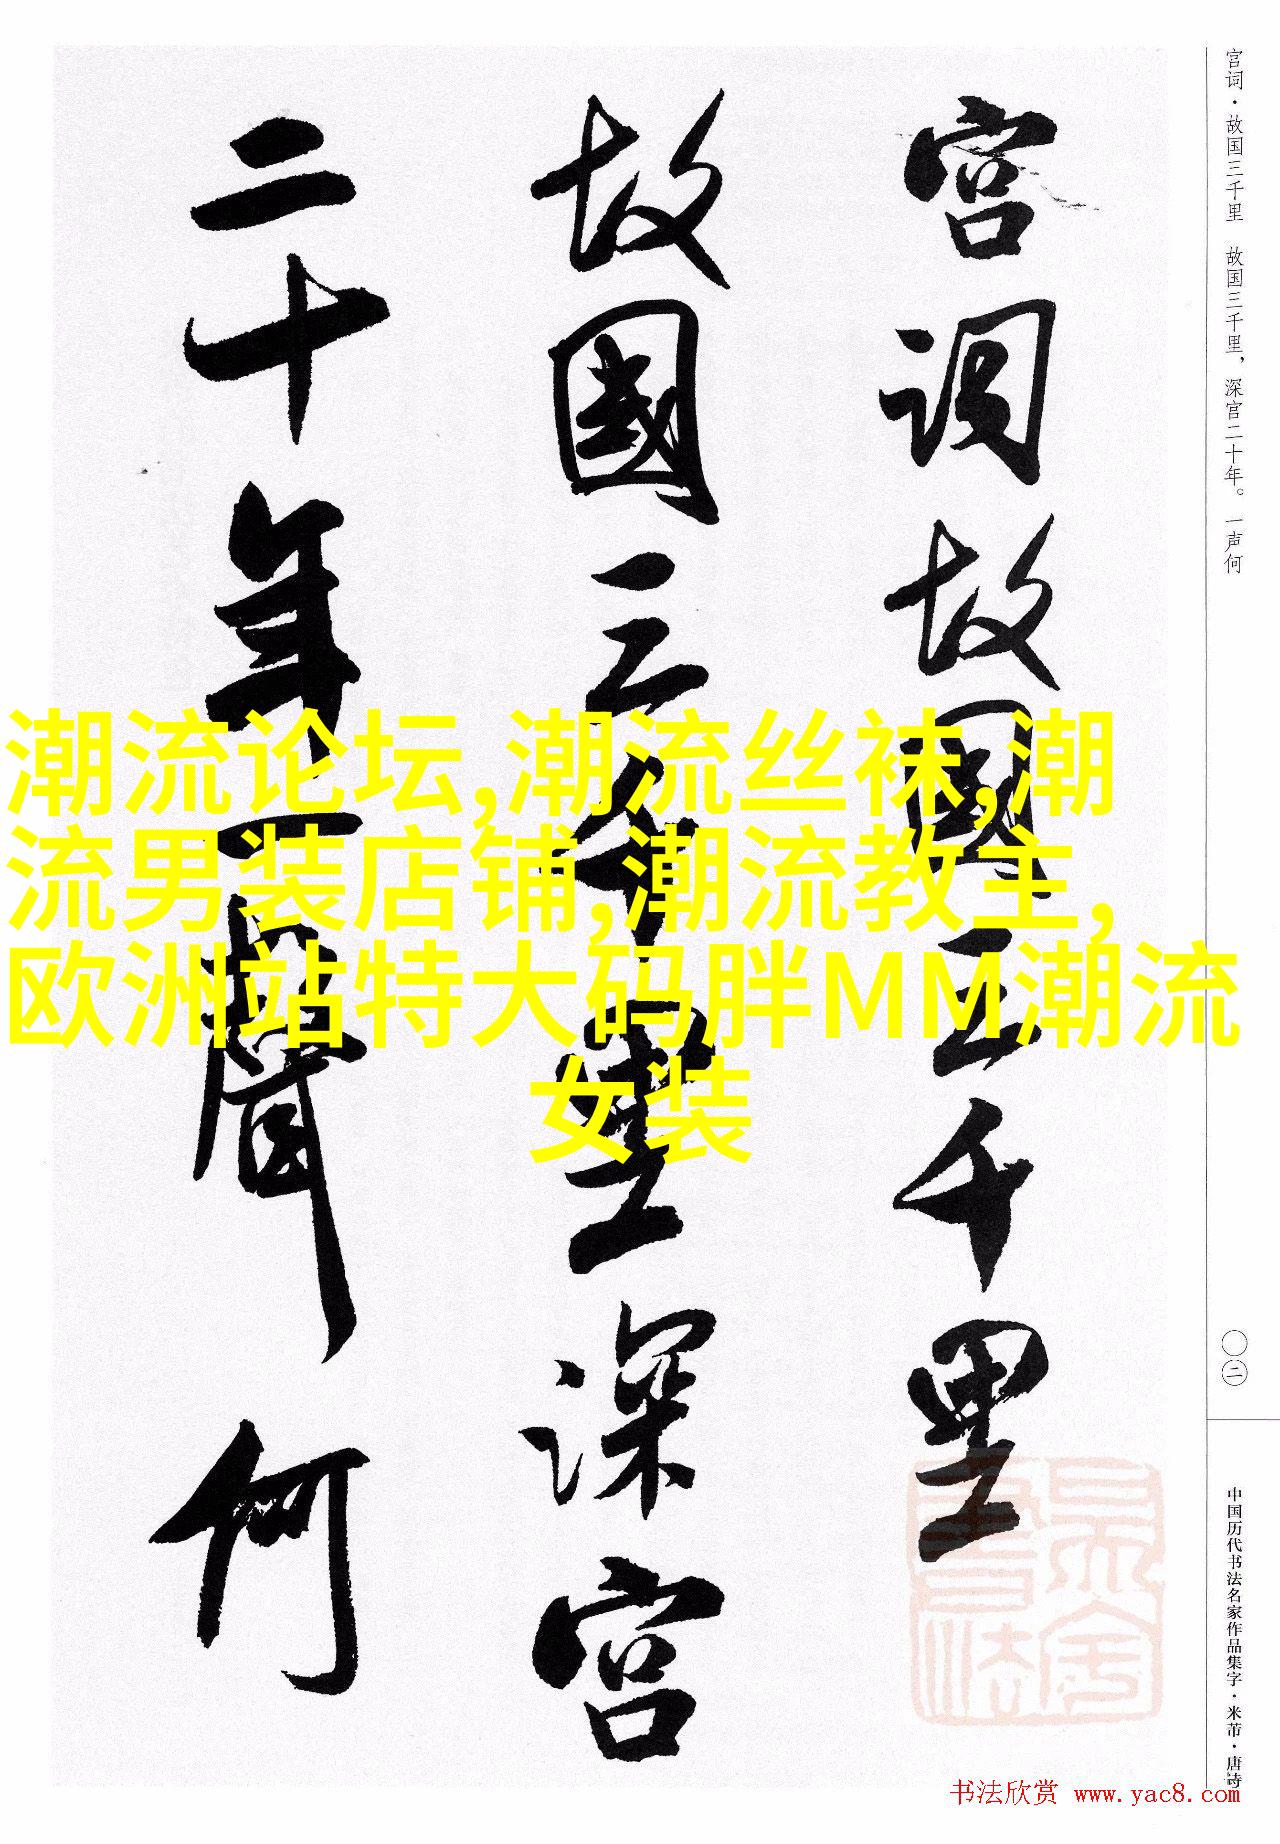 宫词·故国三千里　故国三千里，深宫二十年。一声何
宫词故国三千里
故國三千里深宫
二十年一聲何
潮流论坛,潮流丝袜,潮
流男装店铺,潮流教主,
欧洲站特大码胖MM潮流
女装
〇二
中国历代书法名家作品集字·米芾·唐诗
书法欣赏 www.yac8.com